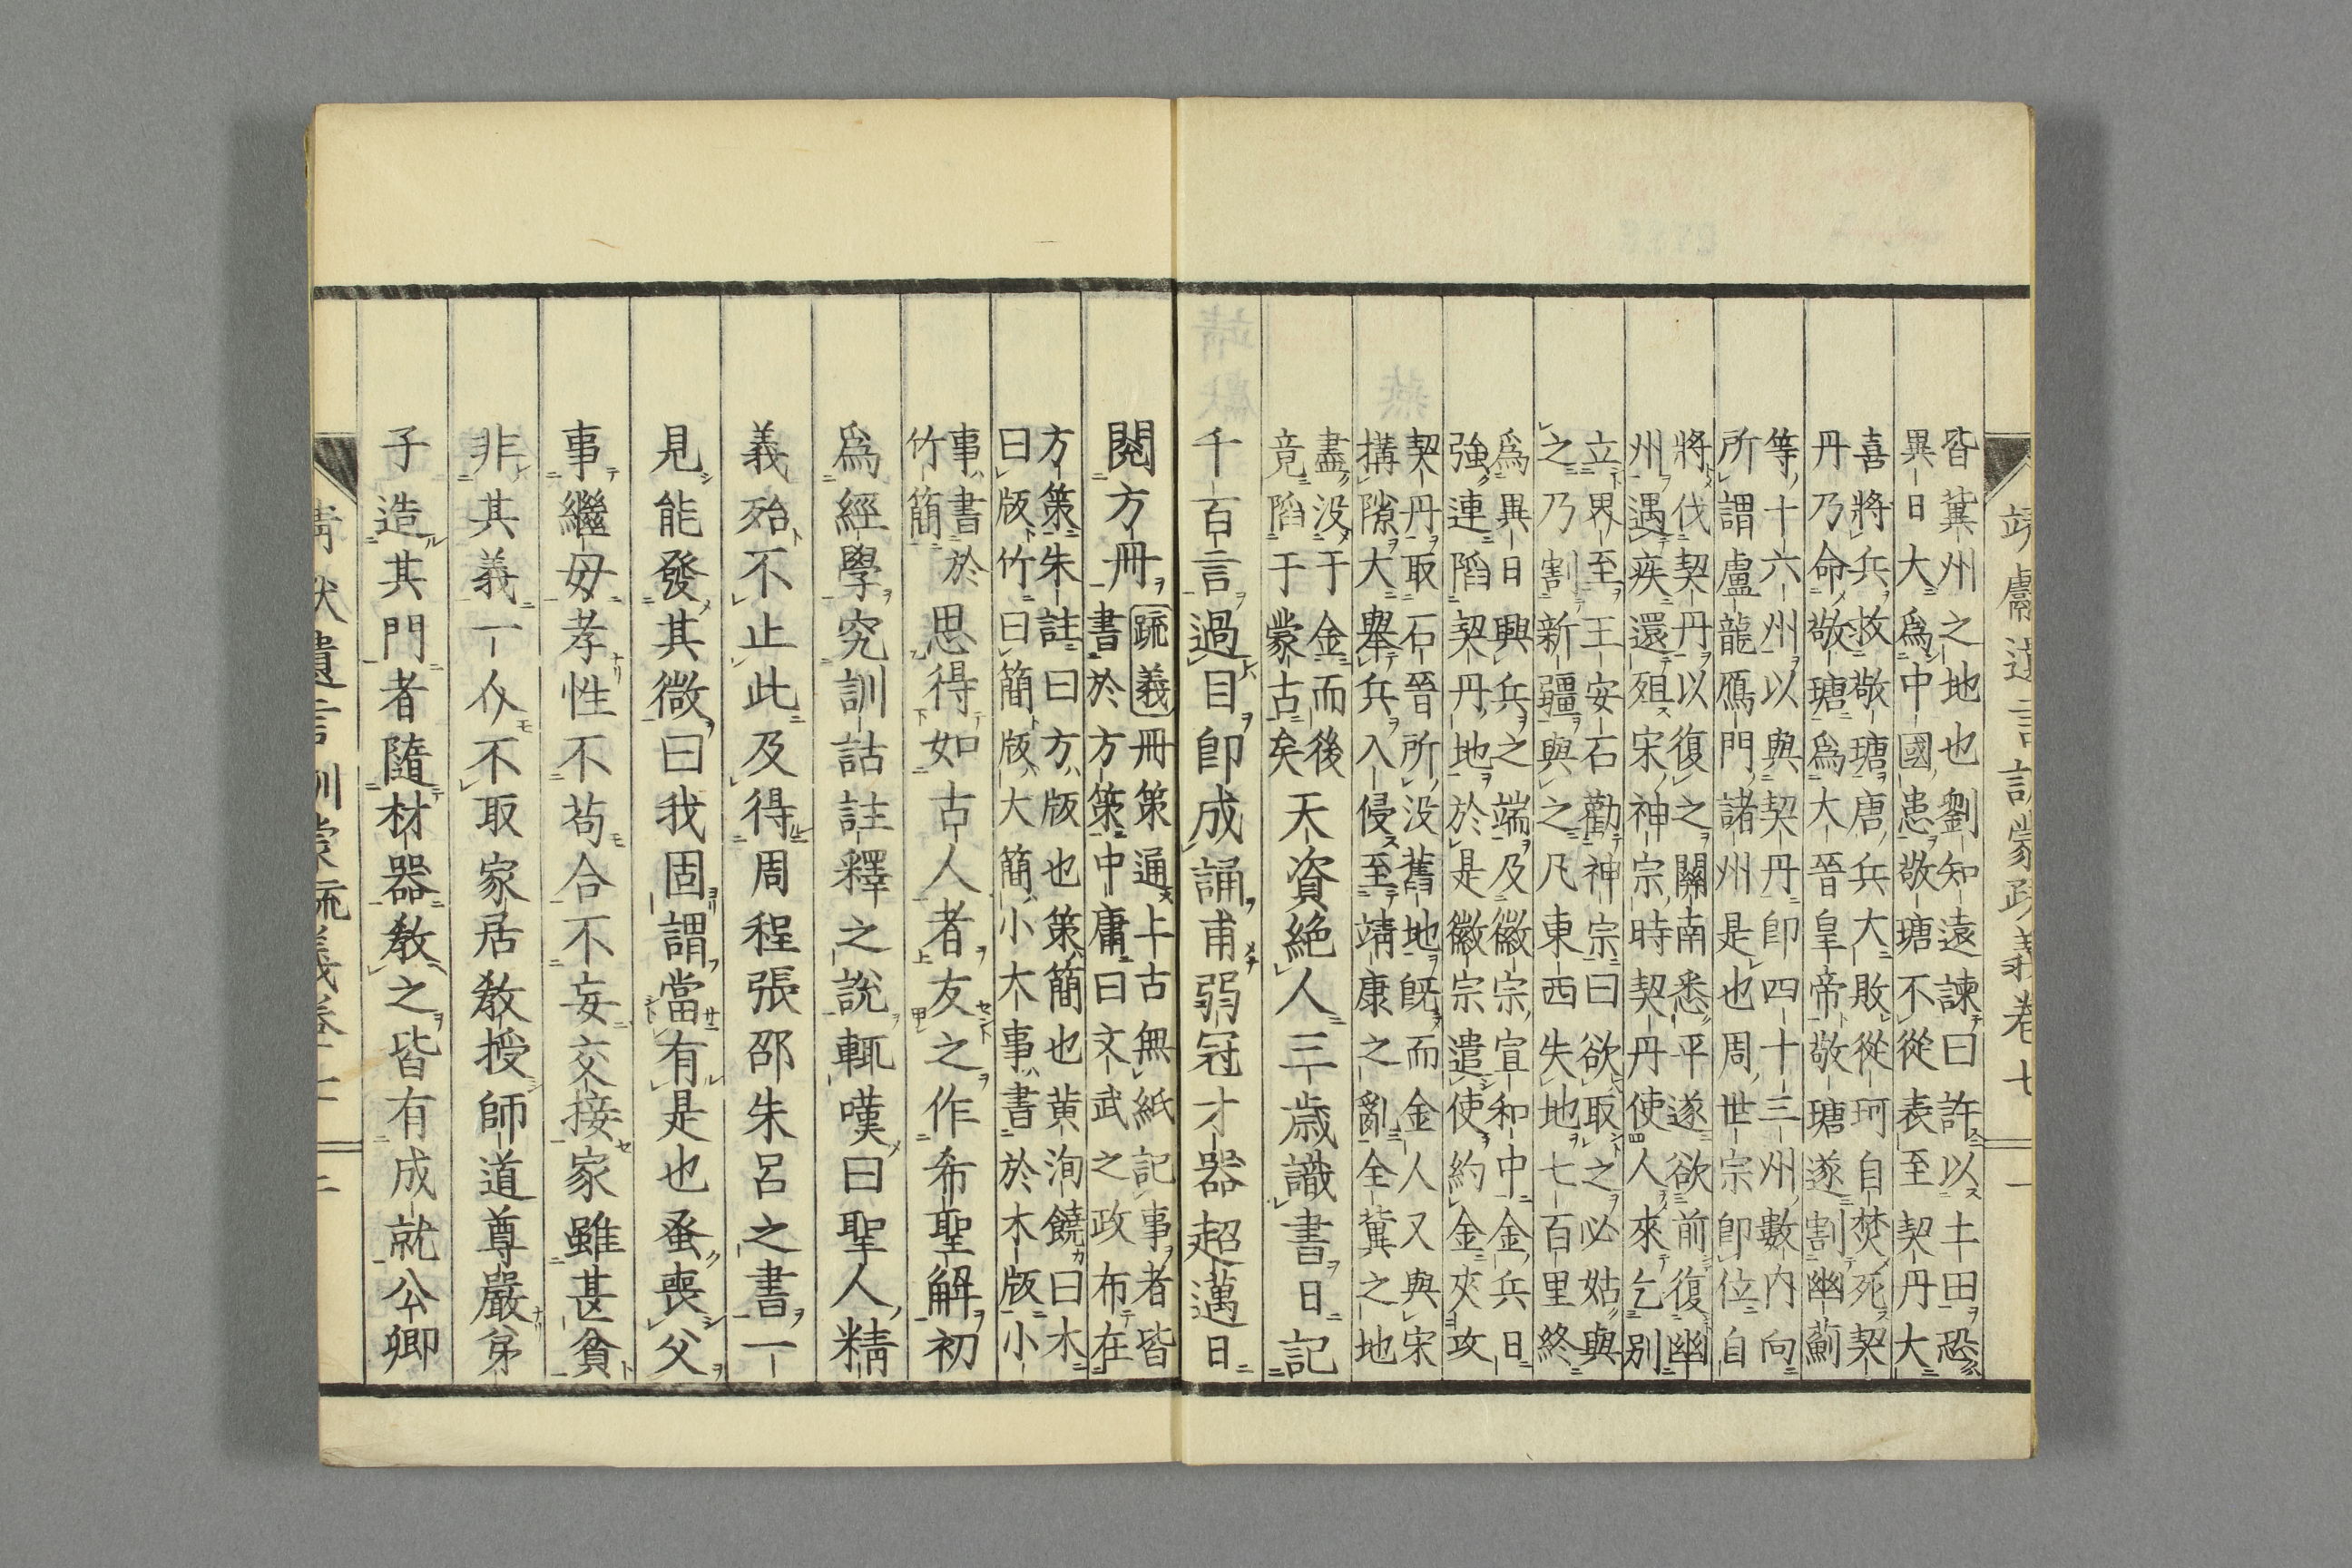 靖獻遺言訓蒙疏義卷七 一
皆冀州之地也劉知遠諫曰許以土田恐
異日大爲中國患敬瑭不從表至契丹大
喜將兵救敬瑭唐兵大敗從珂自焚死契
丹乃命敬瑭爲大晉皇帝敬瑭遂割幽薊
等十六州以與契丹卽四十三州數内向
所謂盧龍鴈門諸州是也周世宗卽位自
將伐契丹以復之關南悉平遂欲前復幽
州遇疾還殂宋神宗時契丹使人來乞別
立界至王安石勸神宗曰欲取之必姑與
之乃割新疆與之凡東西失地七百里終
爲異日興兵之端及徽宗宣和中金兵日
強連陷契丹地於是徽宗遣使約金夾攻
契丹取石晉所没舊地既而金人又與宋
搆隙大舉兵入侵至靖康之亂全冀之地
盡没于金而後
竟陷于蒙古矣
天資絶人三歳識書日記
千百言過目卽成誦甫弱冠才器超邁日
閲方冊
疏義冊策通上古無紙記事者皆
書於方策中庸曰文武之政布在
方策朱註曰方版也策簡也黄洵饒曰木
曰版竹曰簡版大簡小大事書於木版小
事書於
竹簡
思得如古人者友之作希聖解初
爲經學究訓詁註釋之說輒嘆曰聖人精
義殆不止此及得周程張邵朱呂之書一
見能發其微曰我固謂當有是也蚤喪父
事繼毋孝性不苟合不妄交接家雖甚貧
非其義一介不取家居教授師道尊嚴弟
子造其門者隨材器教之皆有成就公卿
靖獻遺言訓蒙疏義卷七 二